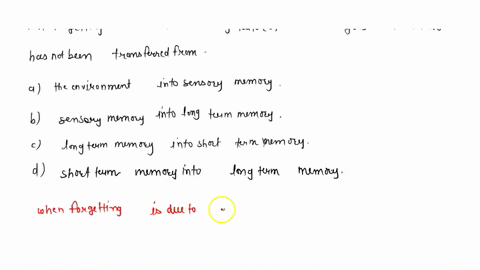 has not been transferred from.
a) the environment into sensory memory.
b) sensory memory into long term memory.
c) long term memory into short term memory.
d) short term memory into long term memory.
when forgetting is due to